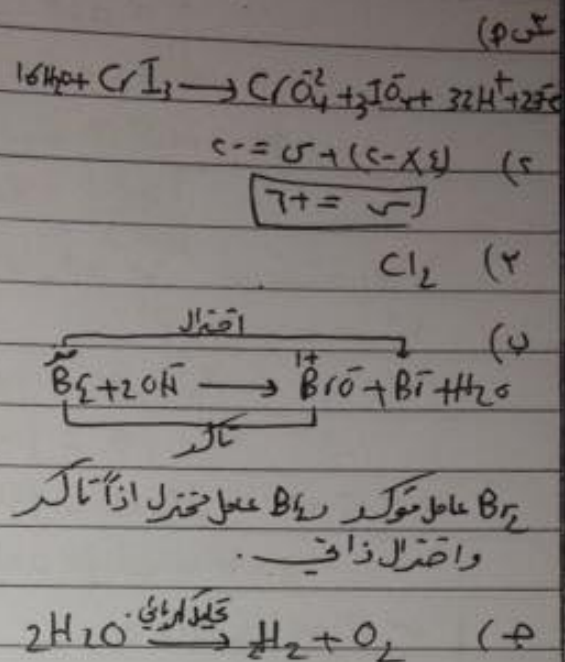 16H₂O + CrI₃ ⟶ CrO₄²⁻ + 3IO₄⁻ + 32H⁺ + 27e
٢) (٤×-٢) + س = -٢
س = +٦
٣) Cl₂
ب) اختزال
صفر +١
Br₂ + 2OH⁻ ⟶ BrO⁻ + Br⁻ + H₂O
تأكسد
Br₂ عامل مؤكسد و Br₂ عامل مختزل اذاً تأكسد
واختزال ذاتي .
ج) 2H₂O ⟶ 2H₂ + O₂ تحليل كهربائي